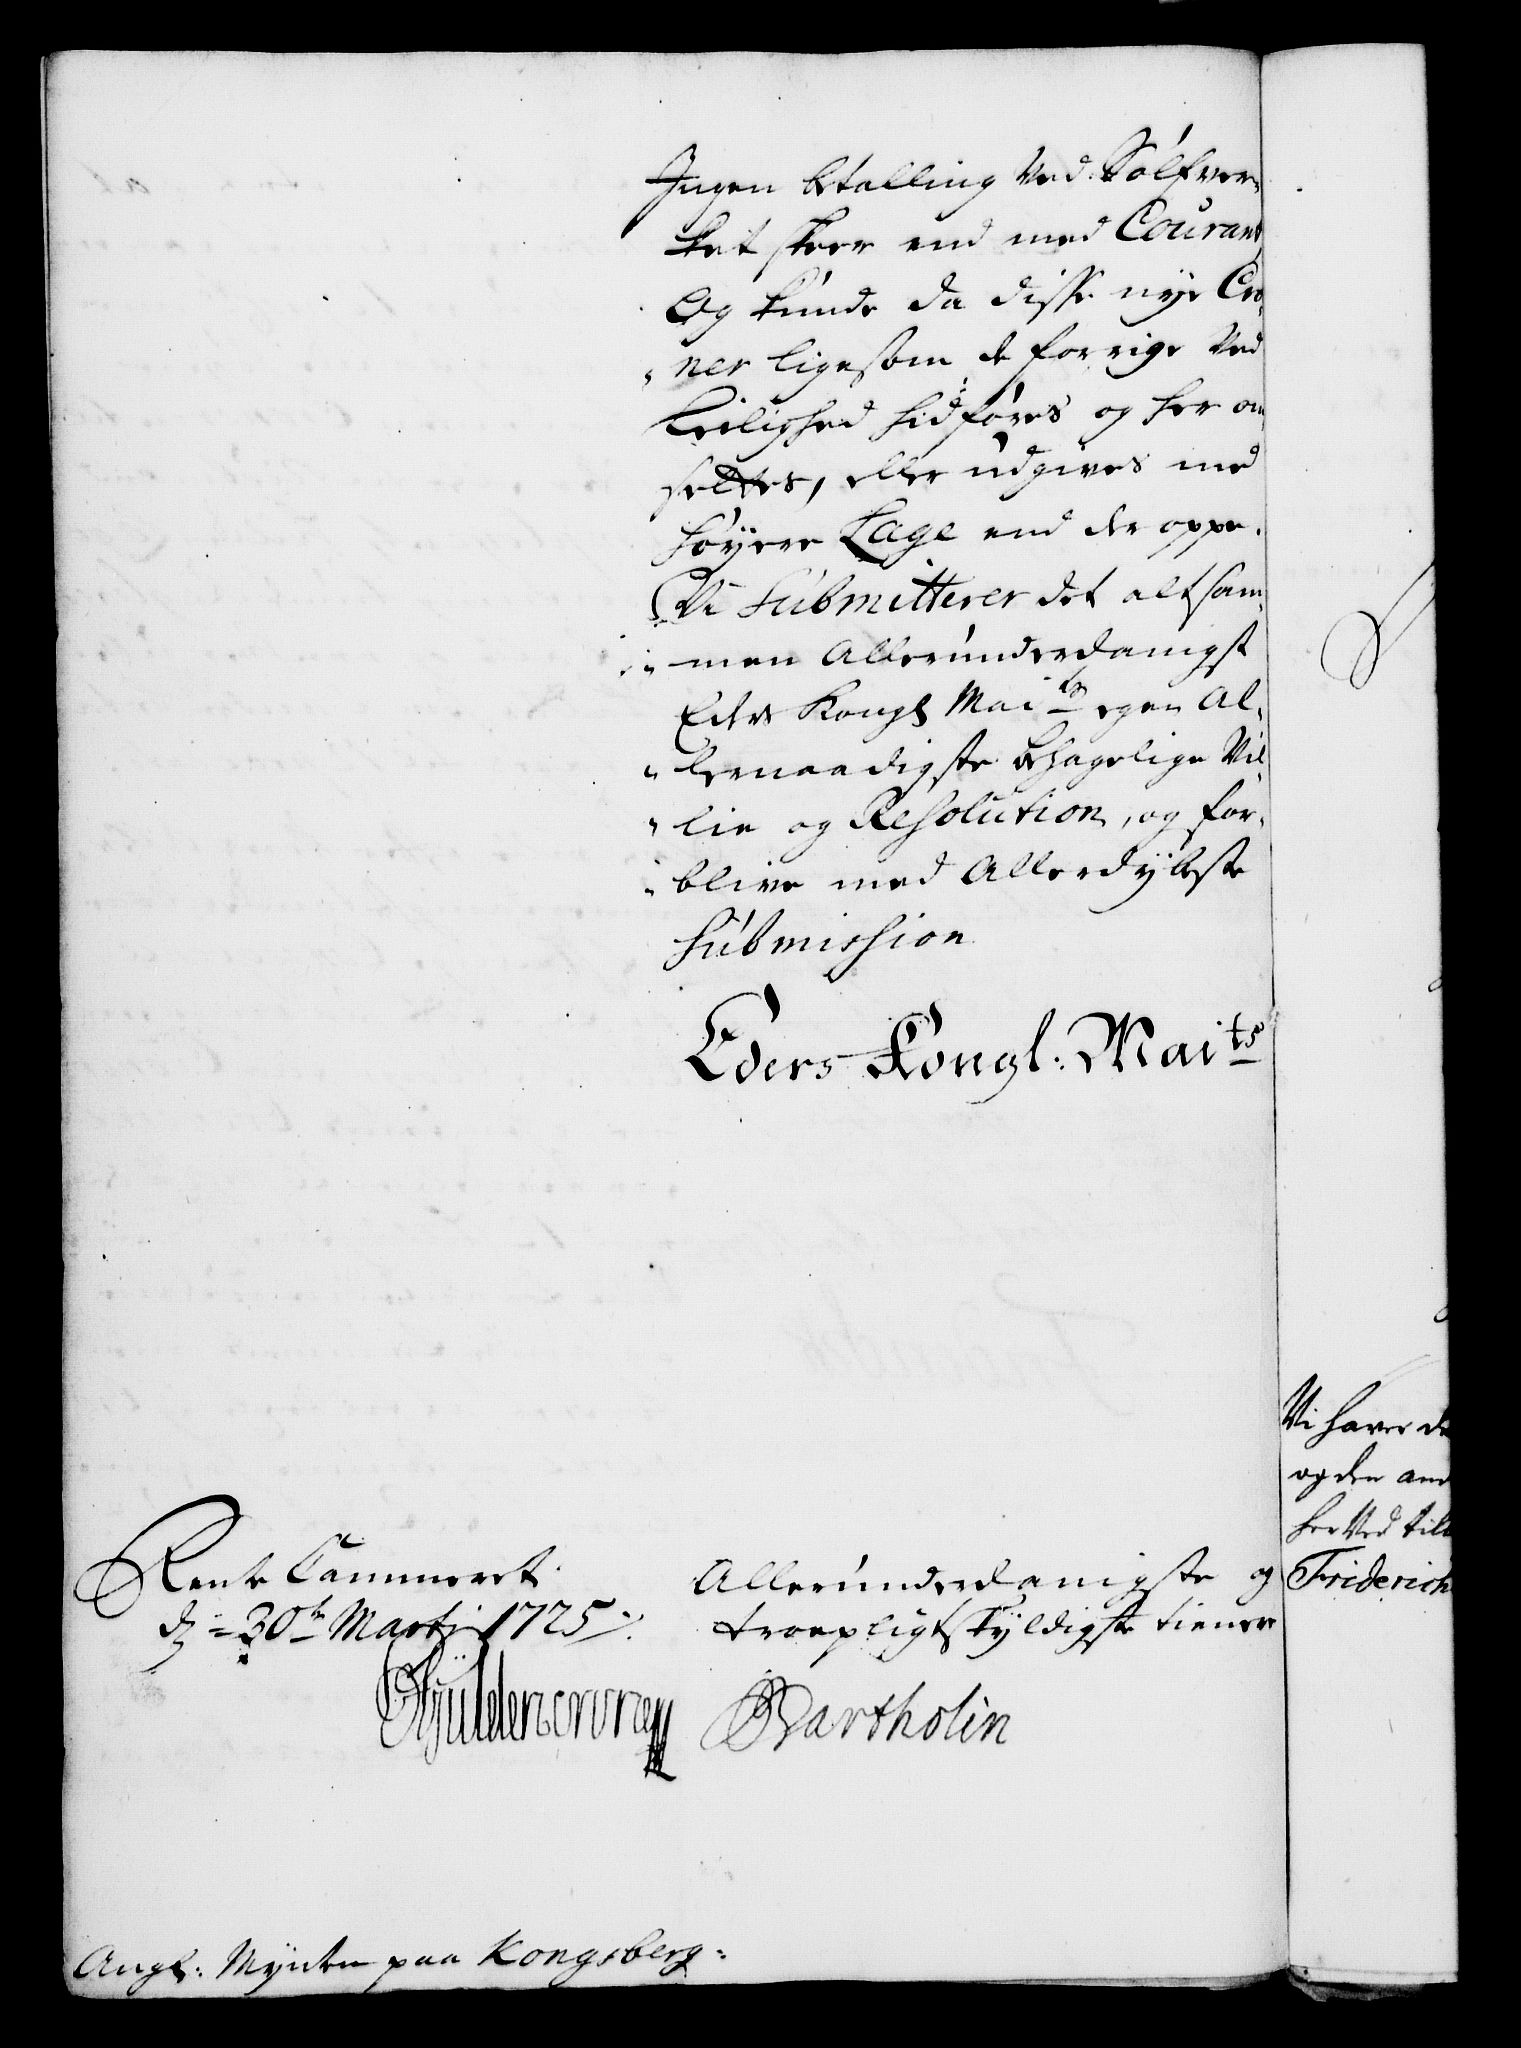 Ingen betalling Ved Sølfver-
ket skeer end med Courant,
Og kunde da disse nye Cro-
ner ligesom de forrige Ved
Leilighed hidføres og her om
settes, eller udgives med
høyere Lage end der oppe.
Vi Submitterer det altsam-
men Allerunderdanigst
Eders Kongl Maits egen Al-
lernaadigste behagelige Vil-
lie og Resolution, og for-
blive med Allerdybeste
Submission
Eders Kongl: Maits
Rente Cammeret
d: 30te Martij 1725
Allerunderdanigste og
troepligtskyldigste tienere
Gyldencrone
Bartholin
Angl: Mynten paa Kongsberg:
Vi haver de
og den and
her Ved till
Friderich